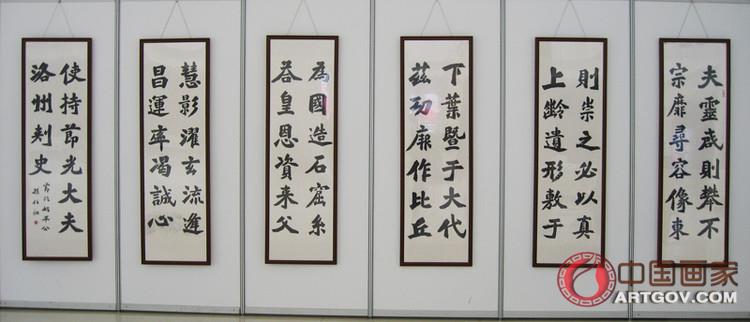 夫靈則攀不
宗靡尋容像東
則崇之必以真
上齡遺形敷于
下葉暨于大代
茲功厥作比丘
為國造石窟系
荅皇恩資来父
慧影濯玄流逢
昌運率竭誠心
使持節光大夫
洛州刺史
節臨始平公
中国画家
ARTGOV.COM